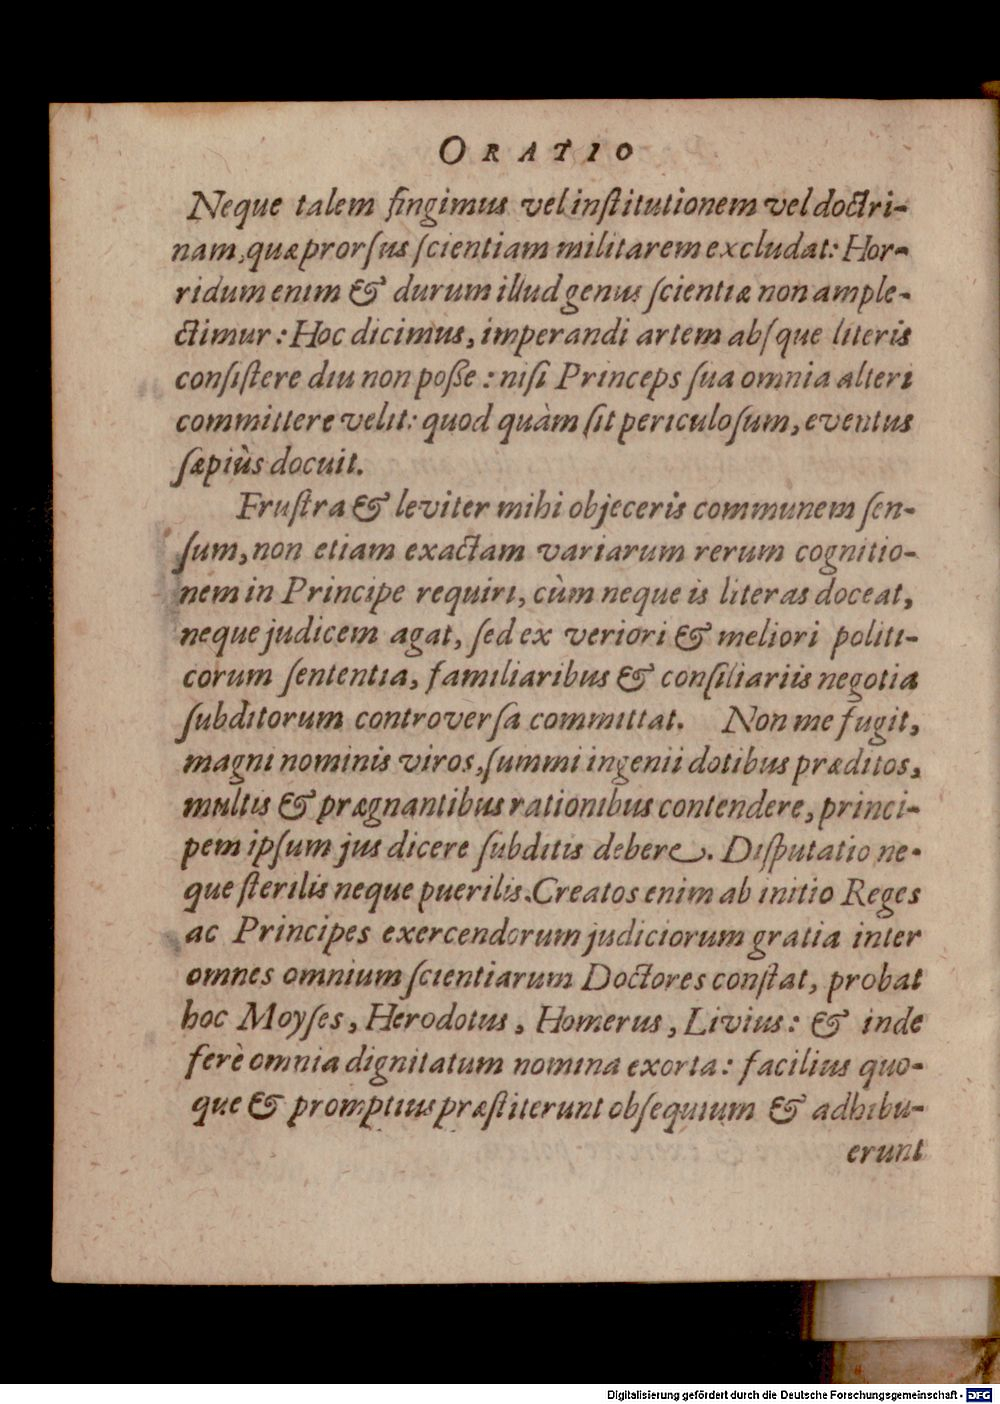 ORATIO
Neque talem fingimus vel inſtitutionem vel doctri-
nam, quæ prorſus ſcientiam militarem excludat: Hor-
ridum enim & durum illud genus ſcientiæ non ample-
ctimur: Hoc dicimus, imperandi artem abſque literis
conſiſtere diu non poſſe: niſi Princeps ſua omnia alteri
committere velit: quod quàm ſit periculoſum, eventus
ſæpiùs docuit.
Fruſtra & leviter mihi objeceris communem ſen-
ſum, non etiam exactam variarum rerum cognitio-
nem in Principe requiri, cùm neque is literas doceat,
neque judicem agat, ſed ex veriori & meliori politi-
corum ſententia, familiaribus & conſiliariis negotia
ſubditorum controverſa committat. Non me fugit,
magni nominis viros, ſummi ingenii dotibus præditos,
multis & prægnantibus rationibus contendere, princi-
pem ipſum jus dicere ſubditis debere. Diſputatio ne-
que ſterilis neque puerilis. Creatos enim ab initio Reges
ac Principes exercendorum judiciorum gratia inter
omnes omnium ſcientiarum Doctores conſtat, probat
hoc Moyſes, Herodotus, Homerus, Livius: & inde
ferè omnia dignitatum nomina exorta: facilius quo-
que & promptius præſtiterunt obſequium & adhibu-
erunt
Digitalisierung gefördert durch die Deutsche Forschungsgemeinschaft - DFG